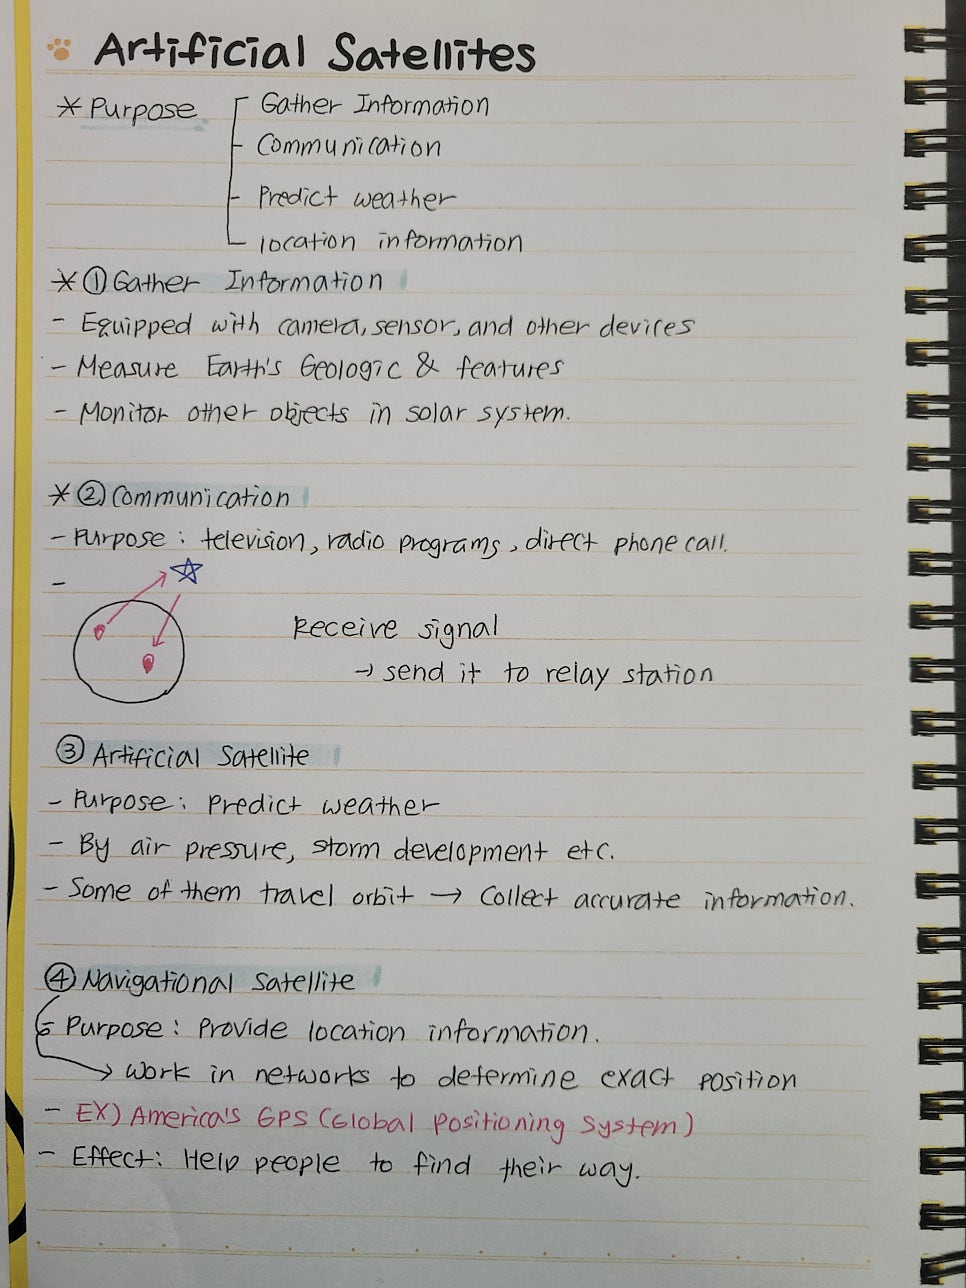 Artificial Satellites
* Purpose
Gather Information
Communication
Predict weather
location information
* ① Gather Information
- Equipped with camera, sensor, and other devices
- Measure Earth's Geologic & features
- Monitor other objects in solar system.
* ② Communication
- Purpose : television, radio programs, direct phone call.
-
Receive signal
→ send it to relay station
③ Artificial Satellite
- Purpose : Predict weather
- By air pressure, storm development etc.
- Some of them travel orbit → Collect accurate information.
④ Navigational Satellite
- Purpose : Provide location information.
→ Work in networks to determine exact position
- EX) America's GPS (Global Positioning System)
- Effect : Help people to find their way.